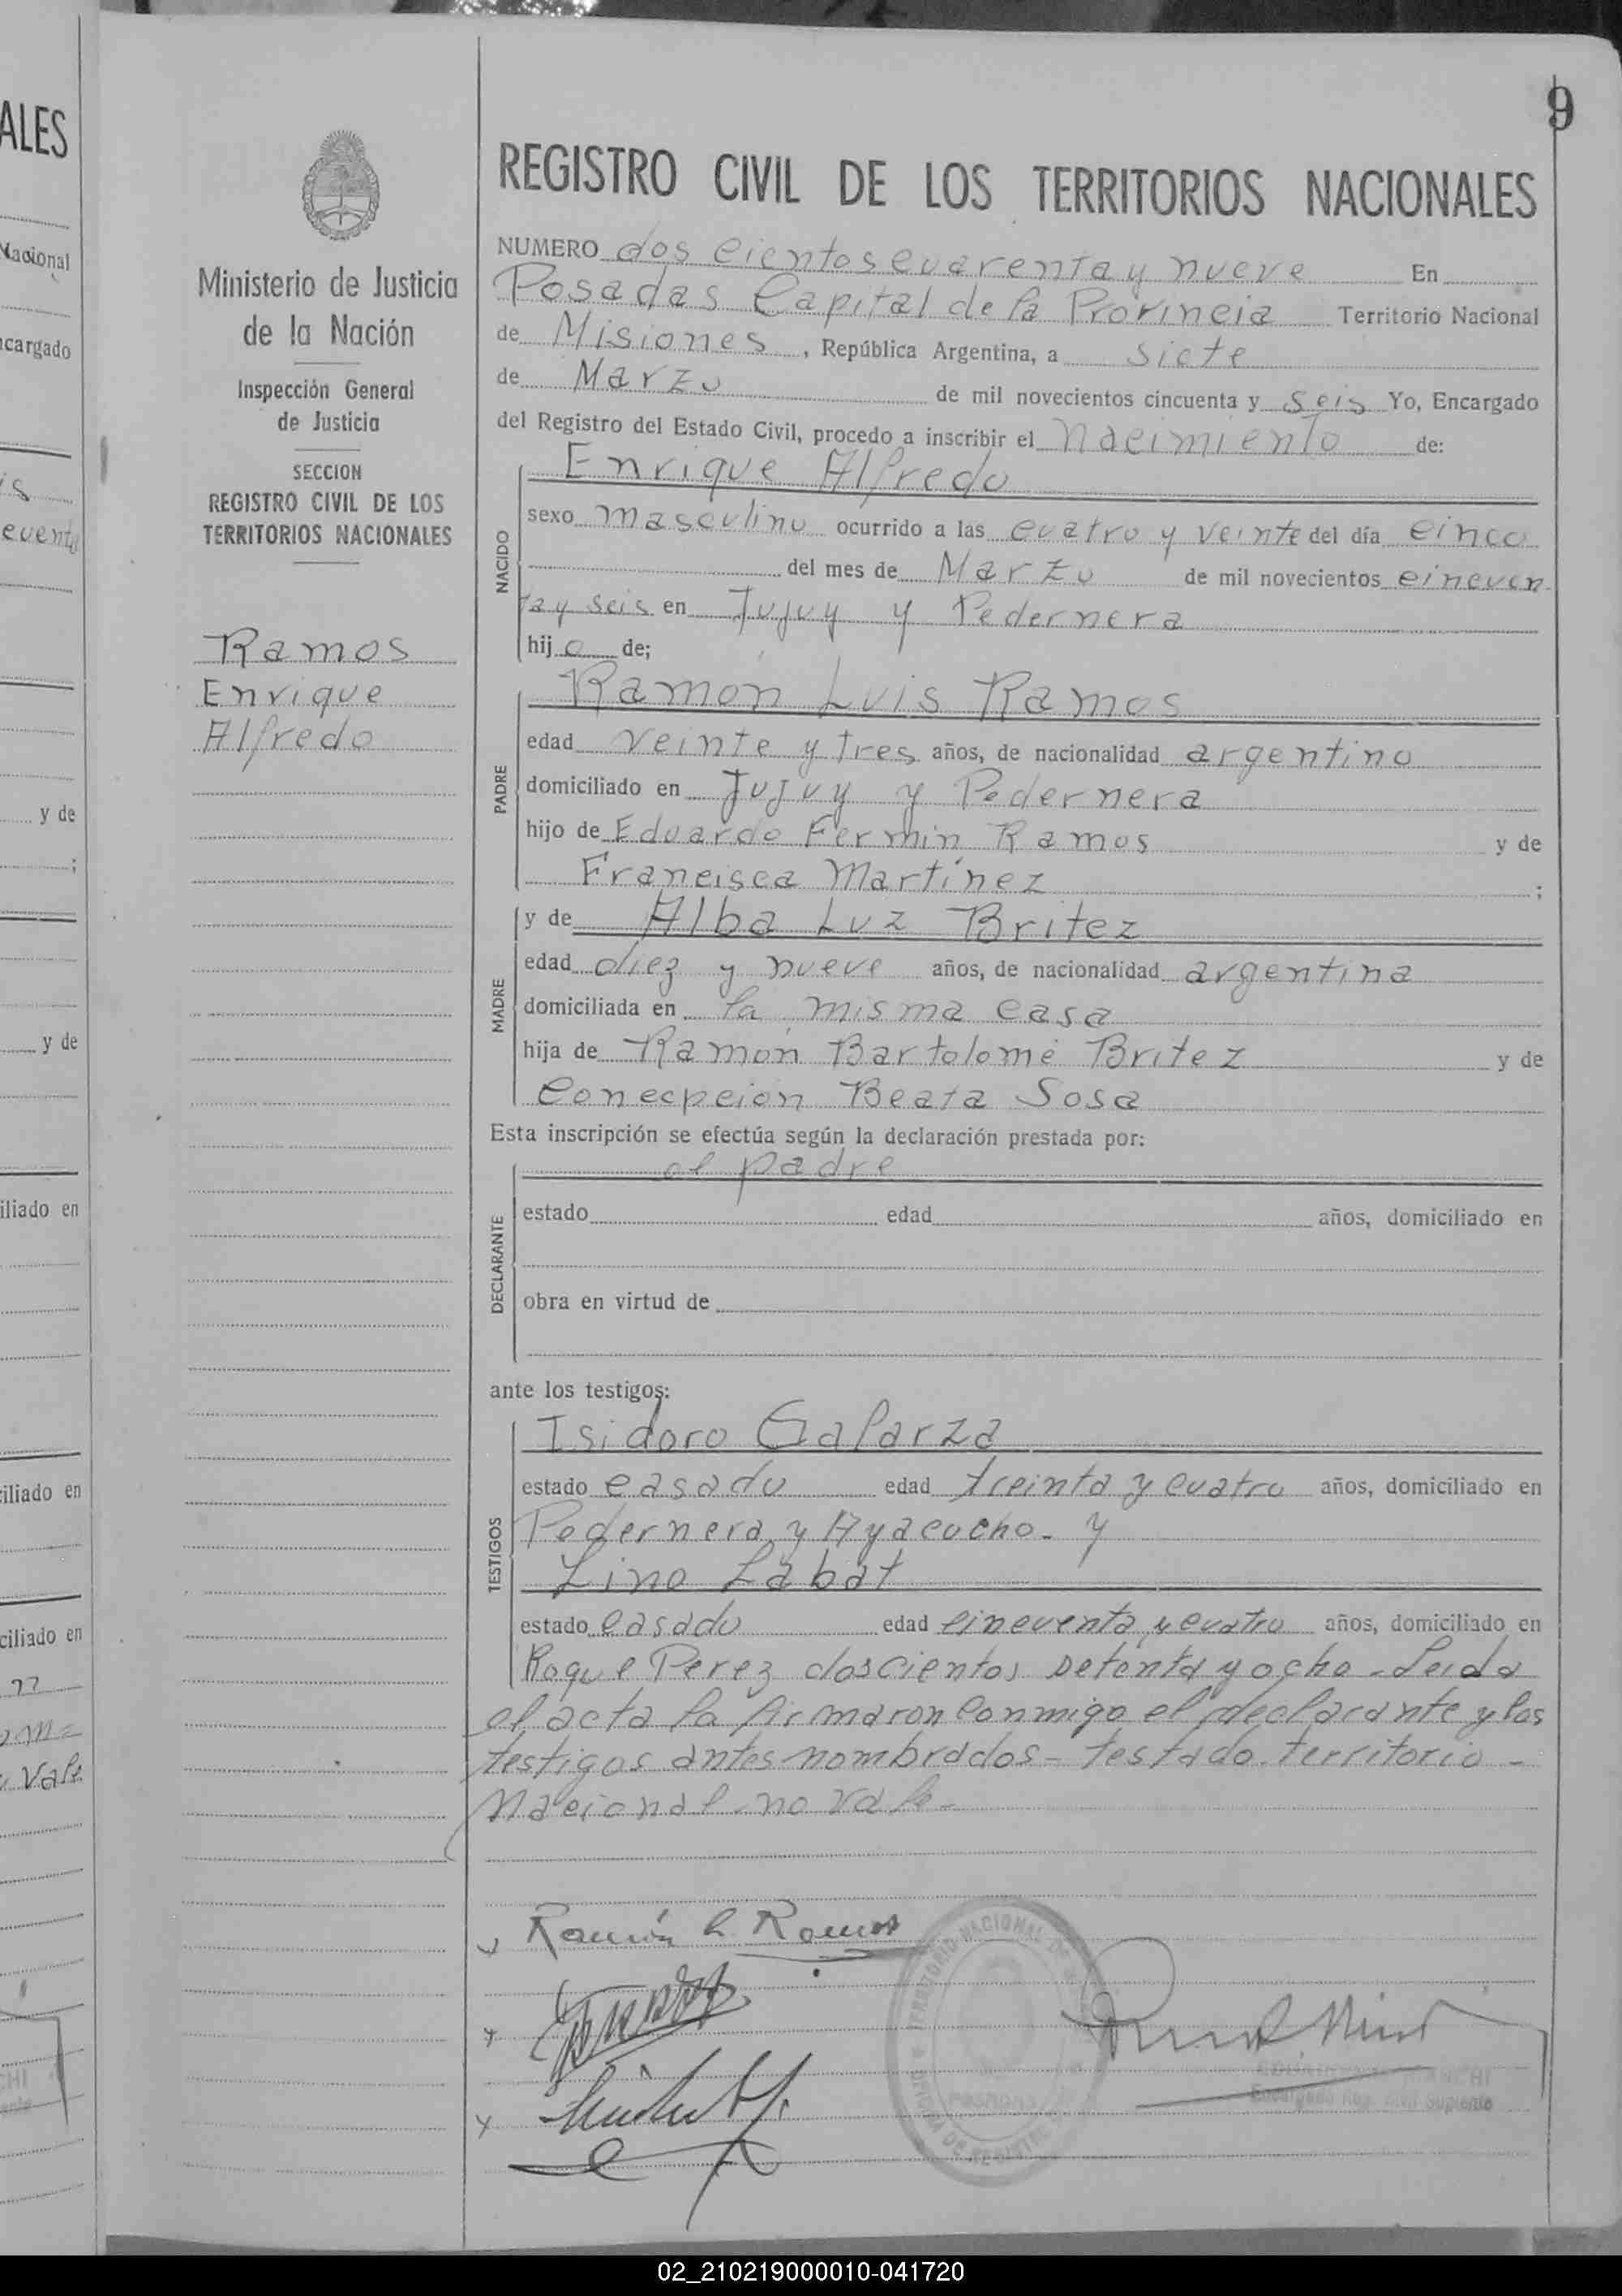 9
REGISTRO CIVIL DE LOS TERRITORIOS NACIONALES
Ministerio de Justicia
de la Nación
Inspección General
de Justicia
SECCION
REGISTRO CIVIL DE LOS
TERRITORIOS NACIONALES
Ramos
Enrique
Alfredo
NUMERO dos cientos cuarenta y nueve En
Posadas Capital de la Provincia Territorio Nacional
de Misiones, República Argentina, a siete
de Marzo de mil novecientos cincuenta y seis Yo, Encargado
del Registro del Estado Civil, procedo a inscribir el nacimiento de:
NACIDO
Enrique Alfredo
sexo masculino ocurrido a las cuatro y veinte del día cinco
del mes de Marzo de mil novecientos cincuen
ta y seis en Jujuy y Pedernera
hijo de;
PADRE
Ramón Luis Ramos
edad veinte y tres años, de nacionalidad argentino
domiciliado en Jujuy y Pedernera
hijo de Eduardo Fermin Ramos y de
Francisca Martínez ;
MADRE
y de Alba Luz Britez
edad diez y nueve años, de nacionalidad argentina
domiciliada en la misma casa
hija de Ramón Bartolomé Britez y de
Conecpción Beata Sosa
Esta inscripción se efectúa según la declaración prestada por:
DECLARANTE
el padre
estado edad años, domiciliado en
obra en virtud de
ante los testigos:
TESTIGOS
Isidoro Galarza
estado casado edad treinta y cuatro años, domiciliado en
Pedernera y Ayacucho - y
Lino Labat
estado casado edad cincuenta y cuatro años, domiciliado en
Roque Perez doscientos setenta y ocho - Leida
el acta la firmaron conmigo el declarante y los
testigos antes nombrados - testado territorio -
Nacional - no vale -
Ramón L. Ramos
Encargado Reg. Civil Suplente
02_210219000010-041720